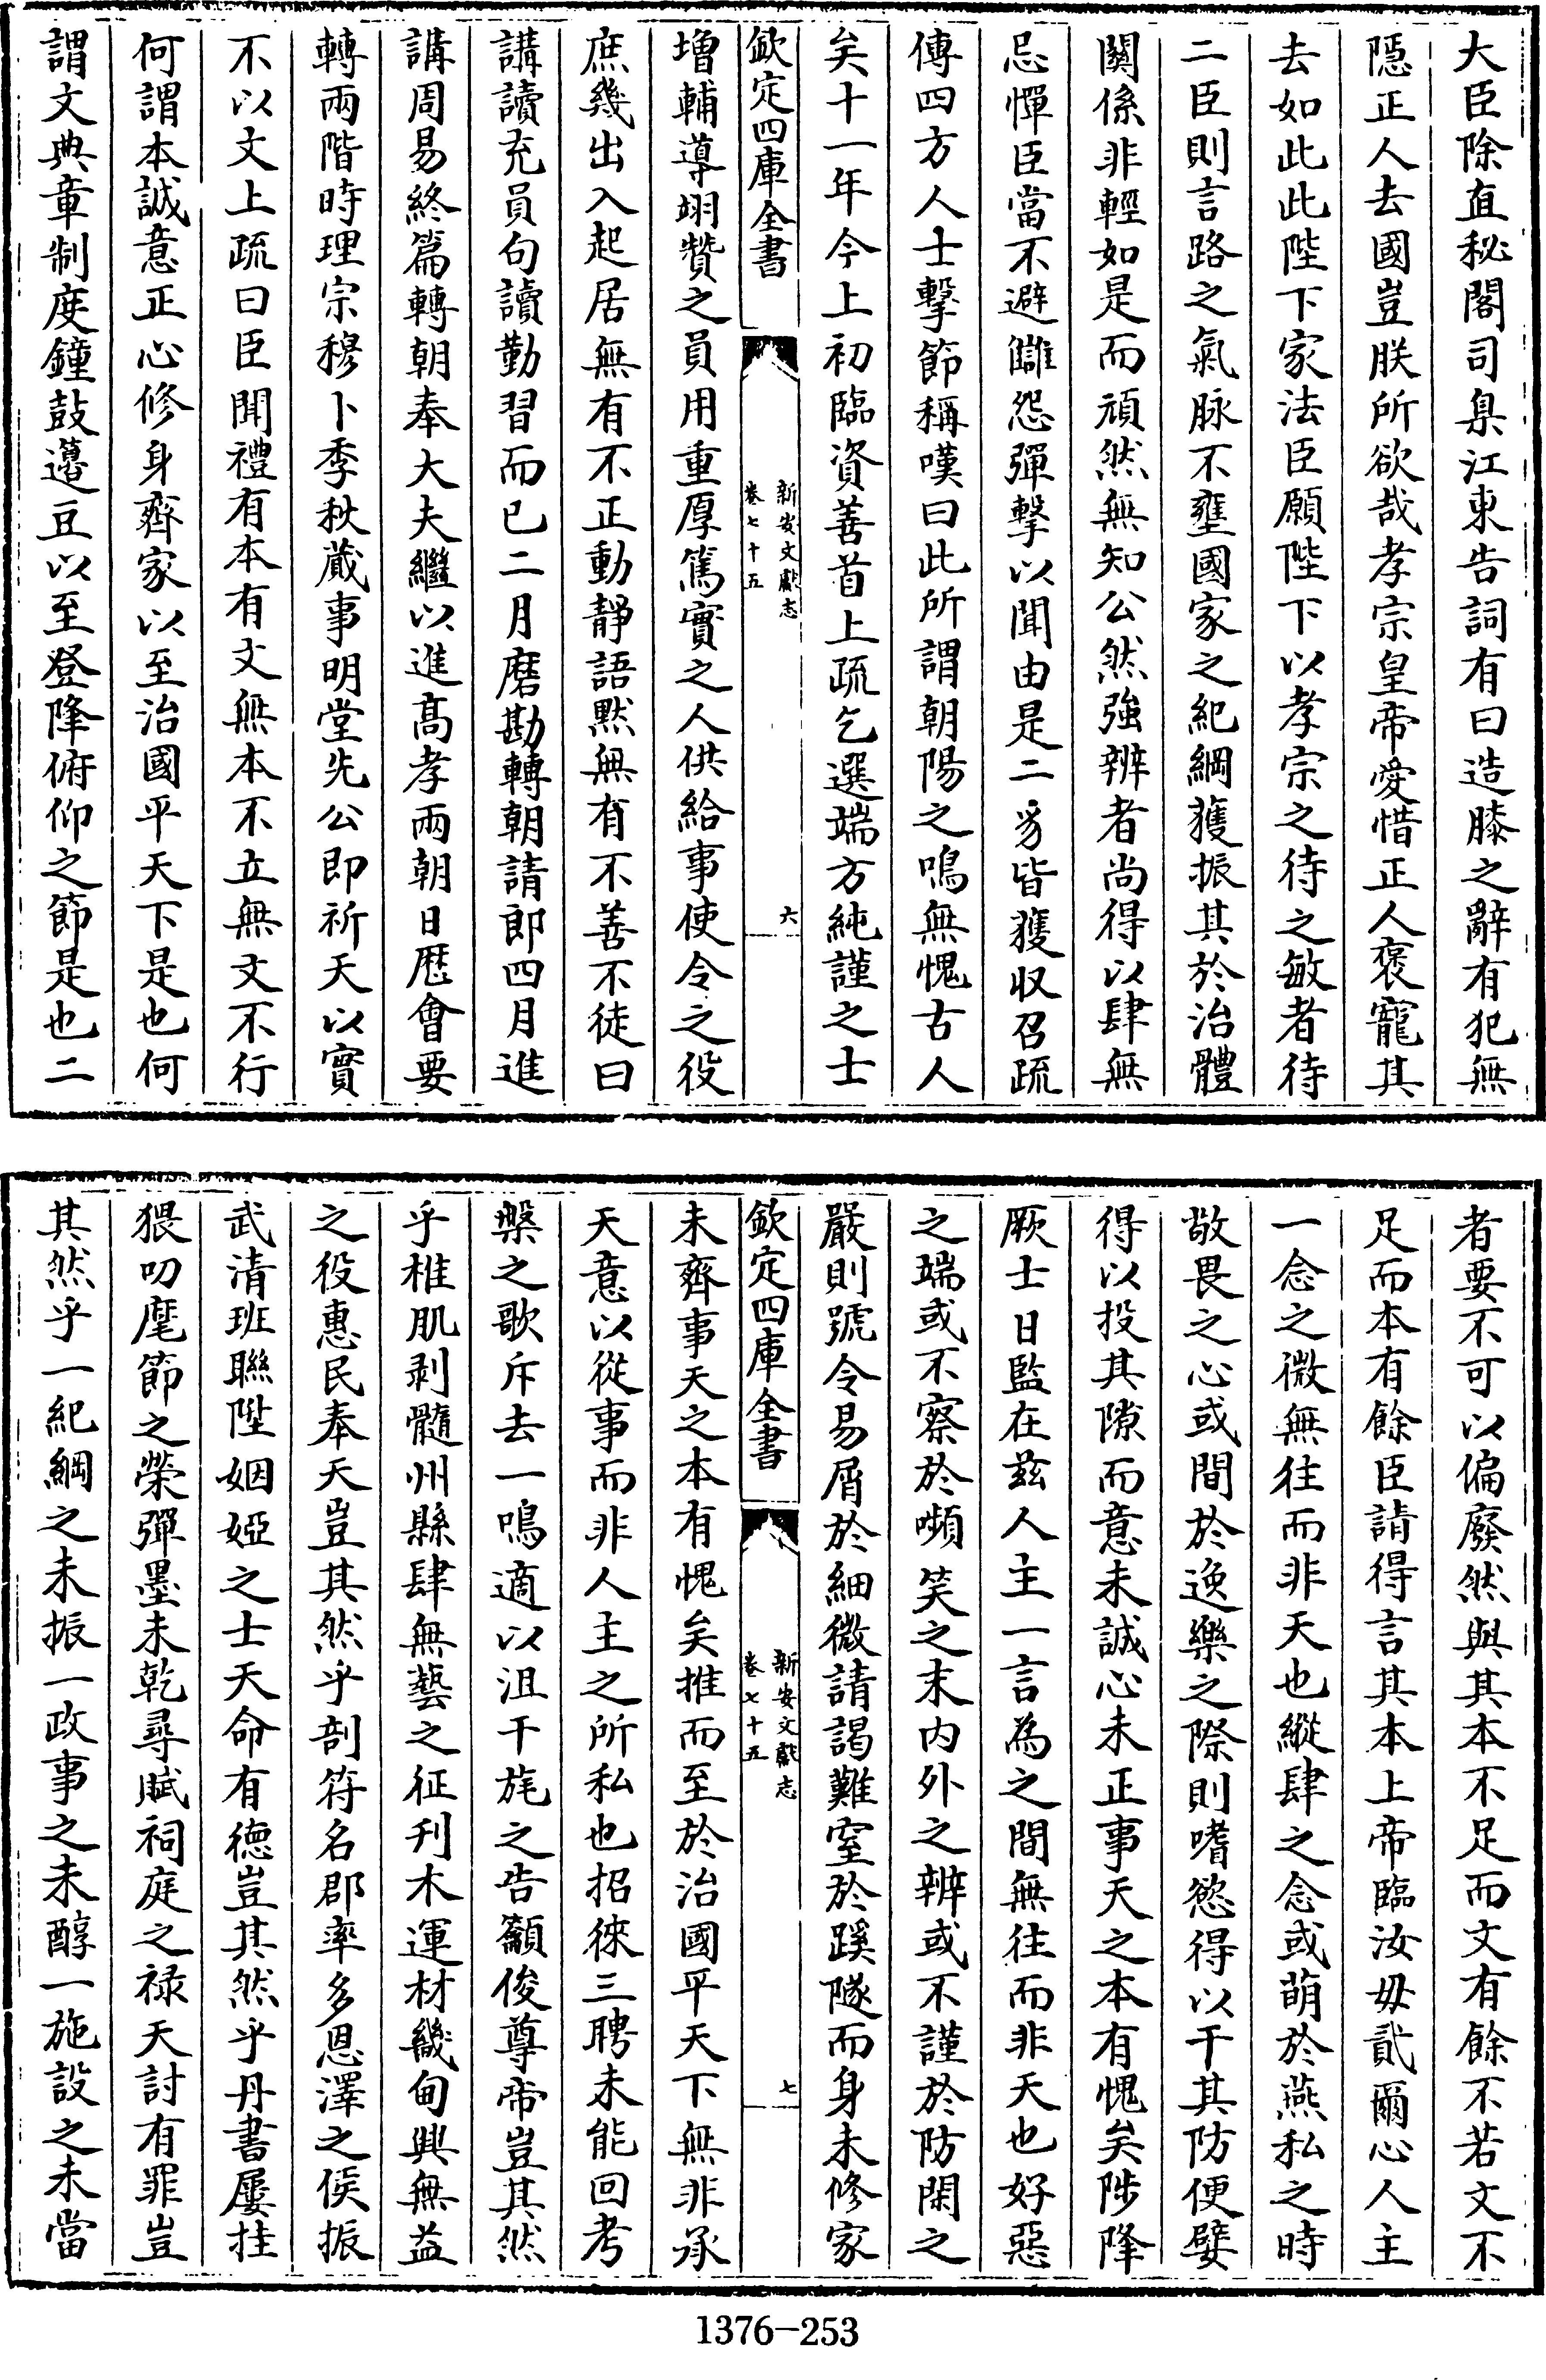 大臣除直秘閣司臬江東告詞有曰造膝之辭有犯無
隱正人去國豈朕所欲哉孝宗皇帝愛惜正人褒寵其
去如此此陛下家法臣願陛下以孝宗之待之敏者待
二臣則言路之氣脉不壅國家之紀綱獲振其於治體
關係非輕如是而頑然無知公然強辨者尚得以肆無
忌憚臣當不避讎怨彈擊以聞由是二豸皆獲収召疏
傳四方人士擊節稱嘆曰此所謂朝陽之鳴無愧古人
矣十一年今上初臨資善首上疏乞選端方純謹之士
欽定四庫全書
新安文獻志
卷七十五
六
增輔導翊贊之員用重厚篤實之人供給事使令之役
庶幾出入起居無有不正動靜語黙無有不善不徒曰
講讀充員句讀勤習而已二月磨勘轉朝請郎四月進
講周易終篇轉朝奉大夫繼以進髙孝兩朝日厯會要
轉兩階時理宗穆卜季秋蕆事明堂先公即祈天以實
不以文上疏曰臣聞禮有本有文無本不立無文不行
何謂本誠意正心修身齊家以至治國平天下是也何
謂文典章制度鐘鼓籩豆以至登降俯仰之節是也二
者要不可以偏廢然與其本不足而文有餘不若文不
足而本有餘臣請得言其本上帝臨汝毋貳爾心人主
一念之微無往而非天也縱肆之念或萌於燕私之時
敬畏之心或間於逸樂之際則嗜慾得以干其防便嬖
得以投其隙而意未誠心未正事天之本有愧矣陟降
厥士日監在兹人主一言為之間無往而非天也好惡
之端或不察於嚬笑之末内外之辨或不謹於防閑之
嚴則號令易屑於細微請謁難窒於蹊隧而身未修家
欽定四庫全書
新安文獻志
卷七十五
七
未齊事天之本有愧矣推而至於治國平天下無非承
天意以從事而非人主之所私也招徠三聘未能回考
槃之歌斥去一鳴適以沮干旄之告籲俊尊帝豈其然
乎椎肌剥髓州縣肆無藝之征刋木運材畿甸興無益
之役惠民奉天豈其然乎剖符名郡率多恩澤之侯振
武清班聯陞姻婭之士天命有德豈其然乎丹書屢挂
猥叨麾節之榮彈墨未乾尋賦祠庭之禄天討有罪豈
其然乎一紀綱之未振一政事之未醇一施設之未當
1376-253